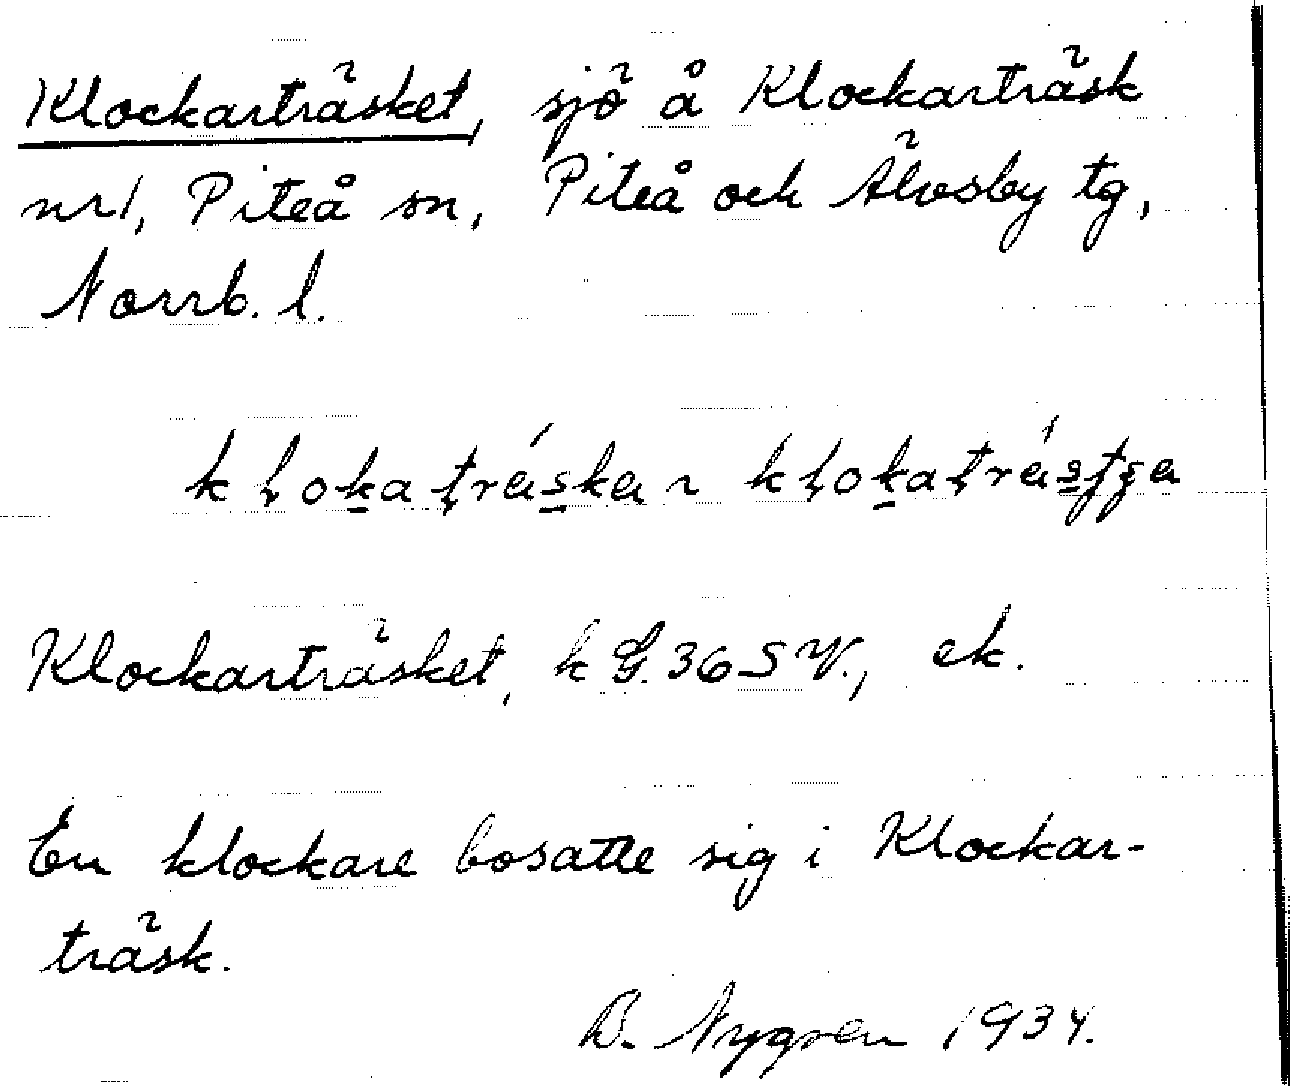 Klockarträsket, sjö å Klockarträsk
nr 1, Piteå sn, Piteå och Älvsby tg,
Norrb. l.
Klockarträsket, k G. 36 SV., ek.
En klockare bosatte sig i Klockar-
träsk.
B. Nygren 1934.